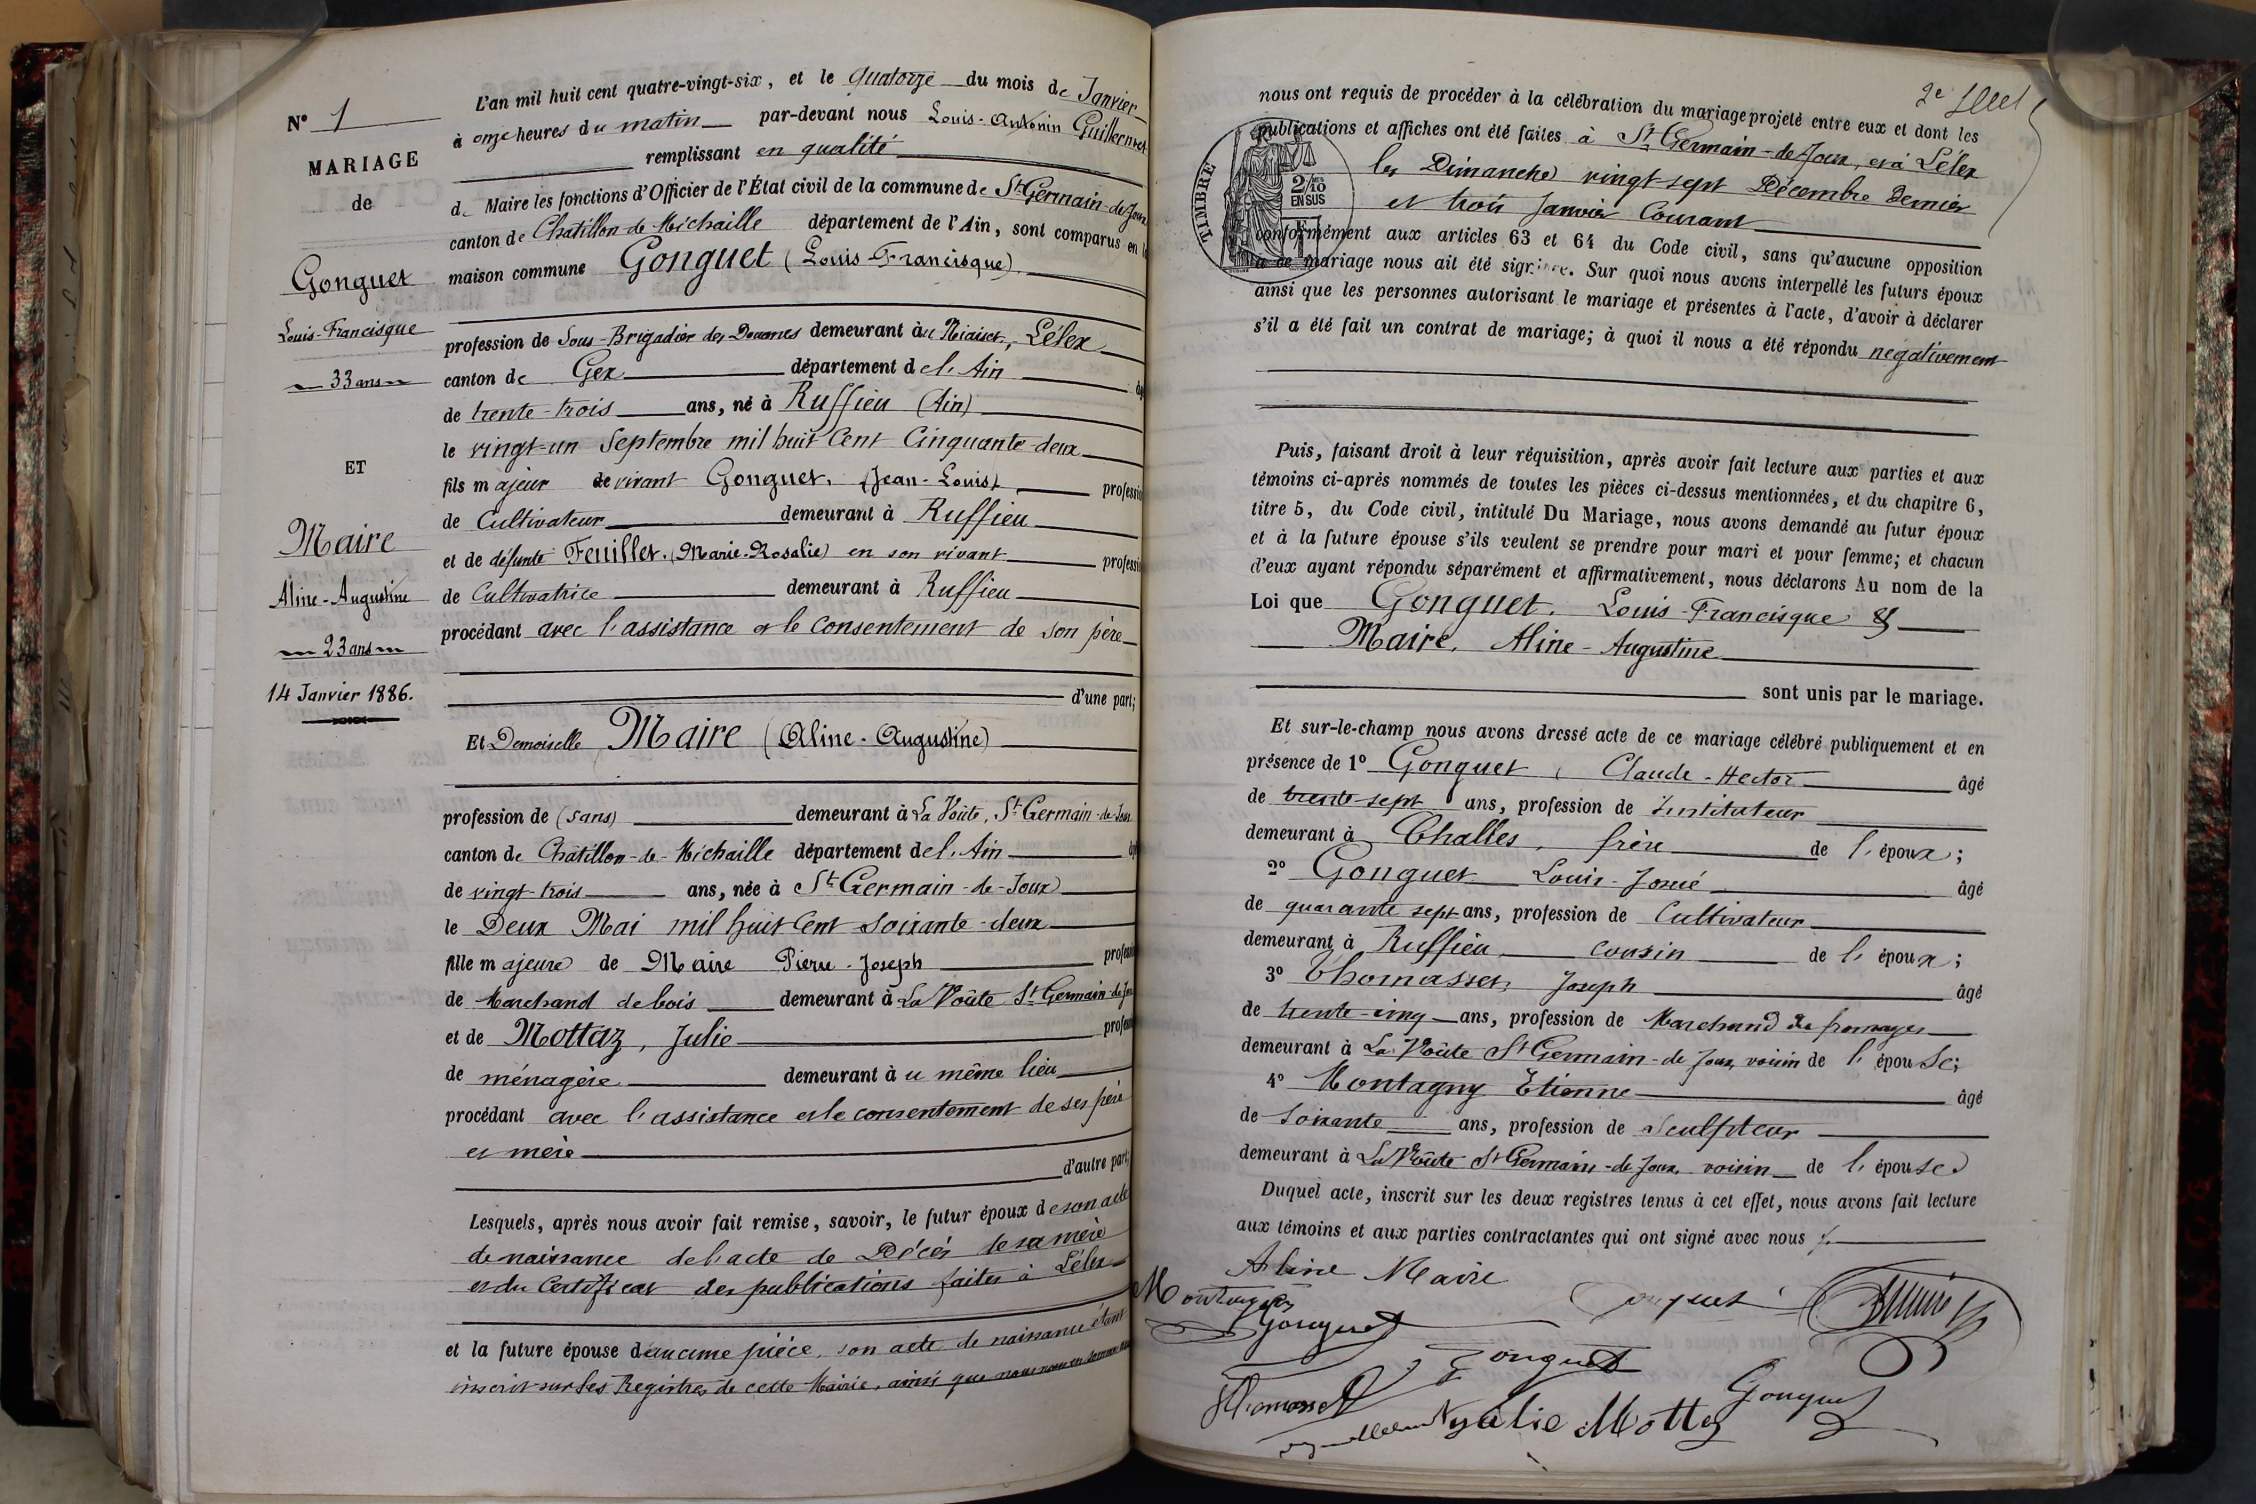 N° 1
MARIAGE
de
Gonguet
Louis-Francisque
33 ans
ET
Maire
Aline-Augustine
23 ans
14 Janvier 1886.
L'an mil huit cent quatre-vingt-six, et le quatorze du mois de Janvier
à onze heures du matin par-devant nous Louis-Antonin Guillermet
remplissant en qualité
de Maire les fonctions d'Officier de l'État civil de la commune de St Germain-de-Joux
canton de Chatillon-de-Michaille département de l'Ain, sont comparus en la
maison commune Gonguet (Louis-Francisque)
profession de Sous-Brigadier des Douanes demeurant au Niaiset, Lélex
canton de Gex département de l'Ain âgé
de trente-trois ans, né à Ruffieu (Ain)
le vingt-un Septembre mil huit Cent Cinquante-deux
fils majeur de vivant Gonguet, (Jean-Louis) profession
de Cultivateur demeurant à Ruffieu
et de défunte Feuillet, (Marie-Rosalie) en son vivant profession
de Cultivatrice demeurant à Ruffieu
procédant avec l'assistance et le consentement de son père
d'une part;
Et Demoiselle Maire (Aline-Augustine)
profession de (sans) demeurant à La Voûte, St Germain-de-Joux
canton de Châtillon-de-Michaille département de l'Ain âgée
de vingt-trois ans, née à St Germain-de-Joux
le Deux Mai mil huit Cent Soixante-deux
fille majeure de Maire Pierre-Joseph profession
de Marchand de bois demeurant à La Voûte St Germain-de-Joux
et de Mottaz, Julie profession
de ménagère demeurant au même lieu
procédant avec l'assistance et le consentement de ses père
et mère
d'autre part;
Lesquels, après nous avoir fait remise, savoir, le futur époux de son acte
de naissance de l'acte de Décés de sa mère
et du Certificat des publications faites à Lélex
et la future épouse d'aucune pièce, son acte de naissance étant
inscrit sur les Registres de cette Mairie, ainsi que nous nous en sommes
2e
nous ont requis de procéder à la célébration du mariage projeté entre eux et dont les
publications et affiches ont été faites à St Germain-de-Joux, et à Lélex
les Dimanches vingt-sept Décembre Dernier
et trois Janvier Courant
conformément aux articles 63 et 64 du Code civil, sans qu'aucune opposition
à ce mariage nous ait été signifiée. Sur quoi nous avons interpellé les futurs époux
ainsi que les personnes autorisant le mariage et présentes à l'acte, d'avoir à déclarer
s'il a été fait un contrat de mariage; à quoi il nous a été répondu négativement
TIMBRE
2/10 EN SUS
Puis, faisant droit à leur réquisition, après avoir fait lecture aux parties et aux
témoins ci-après nommés de toutes les pièces ci-dessus mentionnées, et du chapitre 6,
titre 5, du Code civil, intitulé Du Mariage, nous avons demandé au futur époux
et à la future épouse s'ils veulent se prendre pour mari et pour femme; et chacun
d'eux ayant répondu séparément et affirmativement, nous déclarons Au nom de la
Loi que Gonguet, Louis-Francisque &
Maire, Aline-Augustine
sont unis par le mariage.
Et sur-le-champ nous avons dressé acte de ce mariage célébré publiquement et en
présence de 1° Gonguet, Claude-Hector âgé
de trente-sept ans, profession de Instituteur
demeurant à Challes, frère de l'époux;
2° Gonguet Louis-Josué âgé
de quarante sept ans, profession de Cultivateur
demeurant à Ruffieu cousin de l'époux;
3° Thomasset, Joseph âgé
de trente-cinq ans, profession de Marchand de fromages
demeurant à La Voûte St Germain-de-Joux, voisin de l'épouse;
4° Montagny Etienne âgé
de soixante ans, profession de Sculpteur
demeurant à La Voûte St Germain-de-Joux, voisin de l'épouse
Duquel acte, inscrit sur les deux registres tenus à cet effet, nous avons fait lecture
aux témoins et aux parties contractantes qui ont signé avec nous
Aline Maire
Montagny
Gonguet
Gonguet
Maire
Gonguet
Thomasset
Julie Mottaz
Gonguet